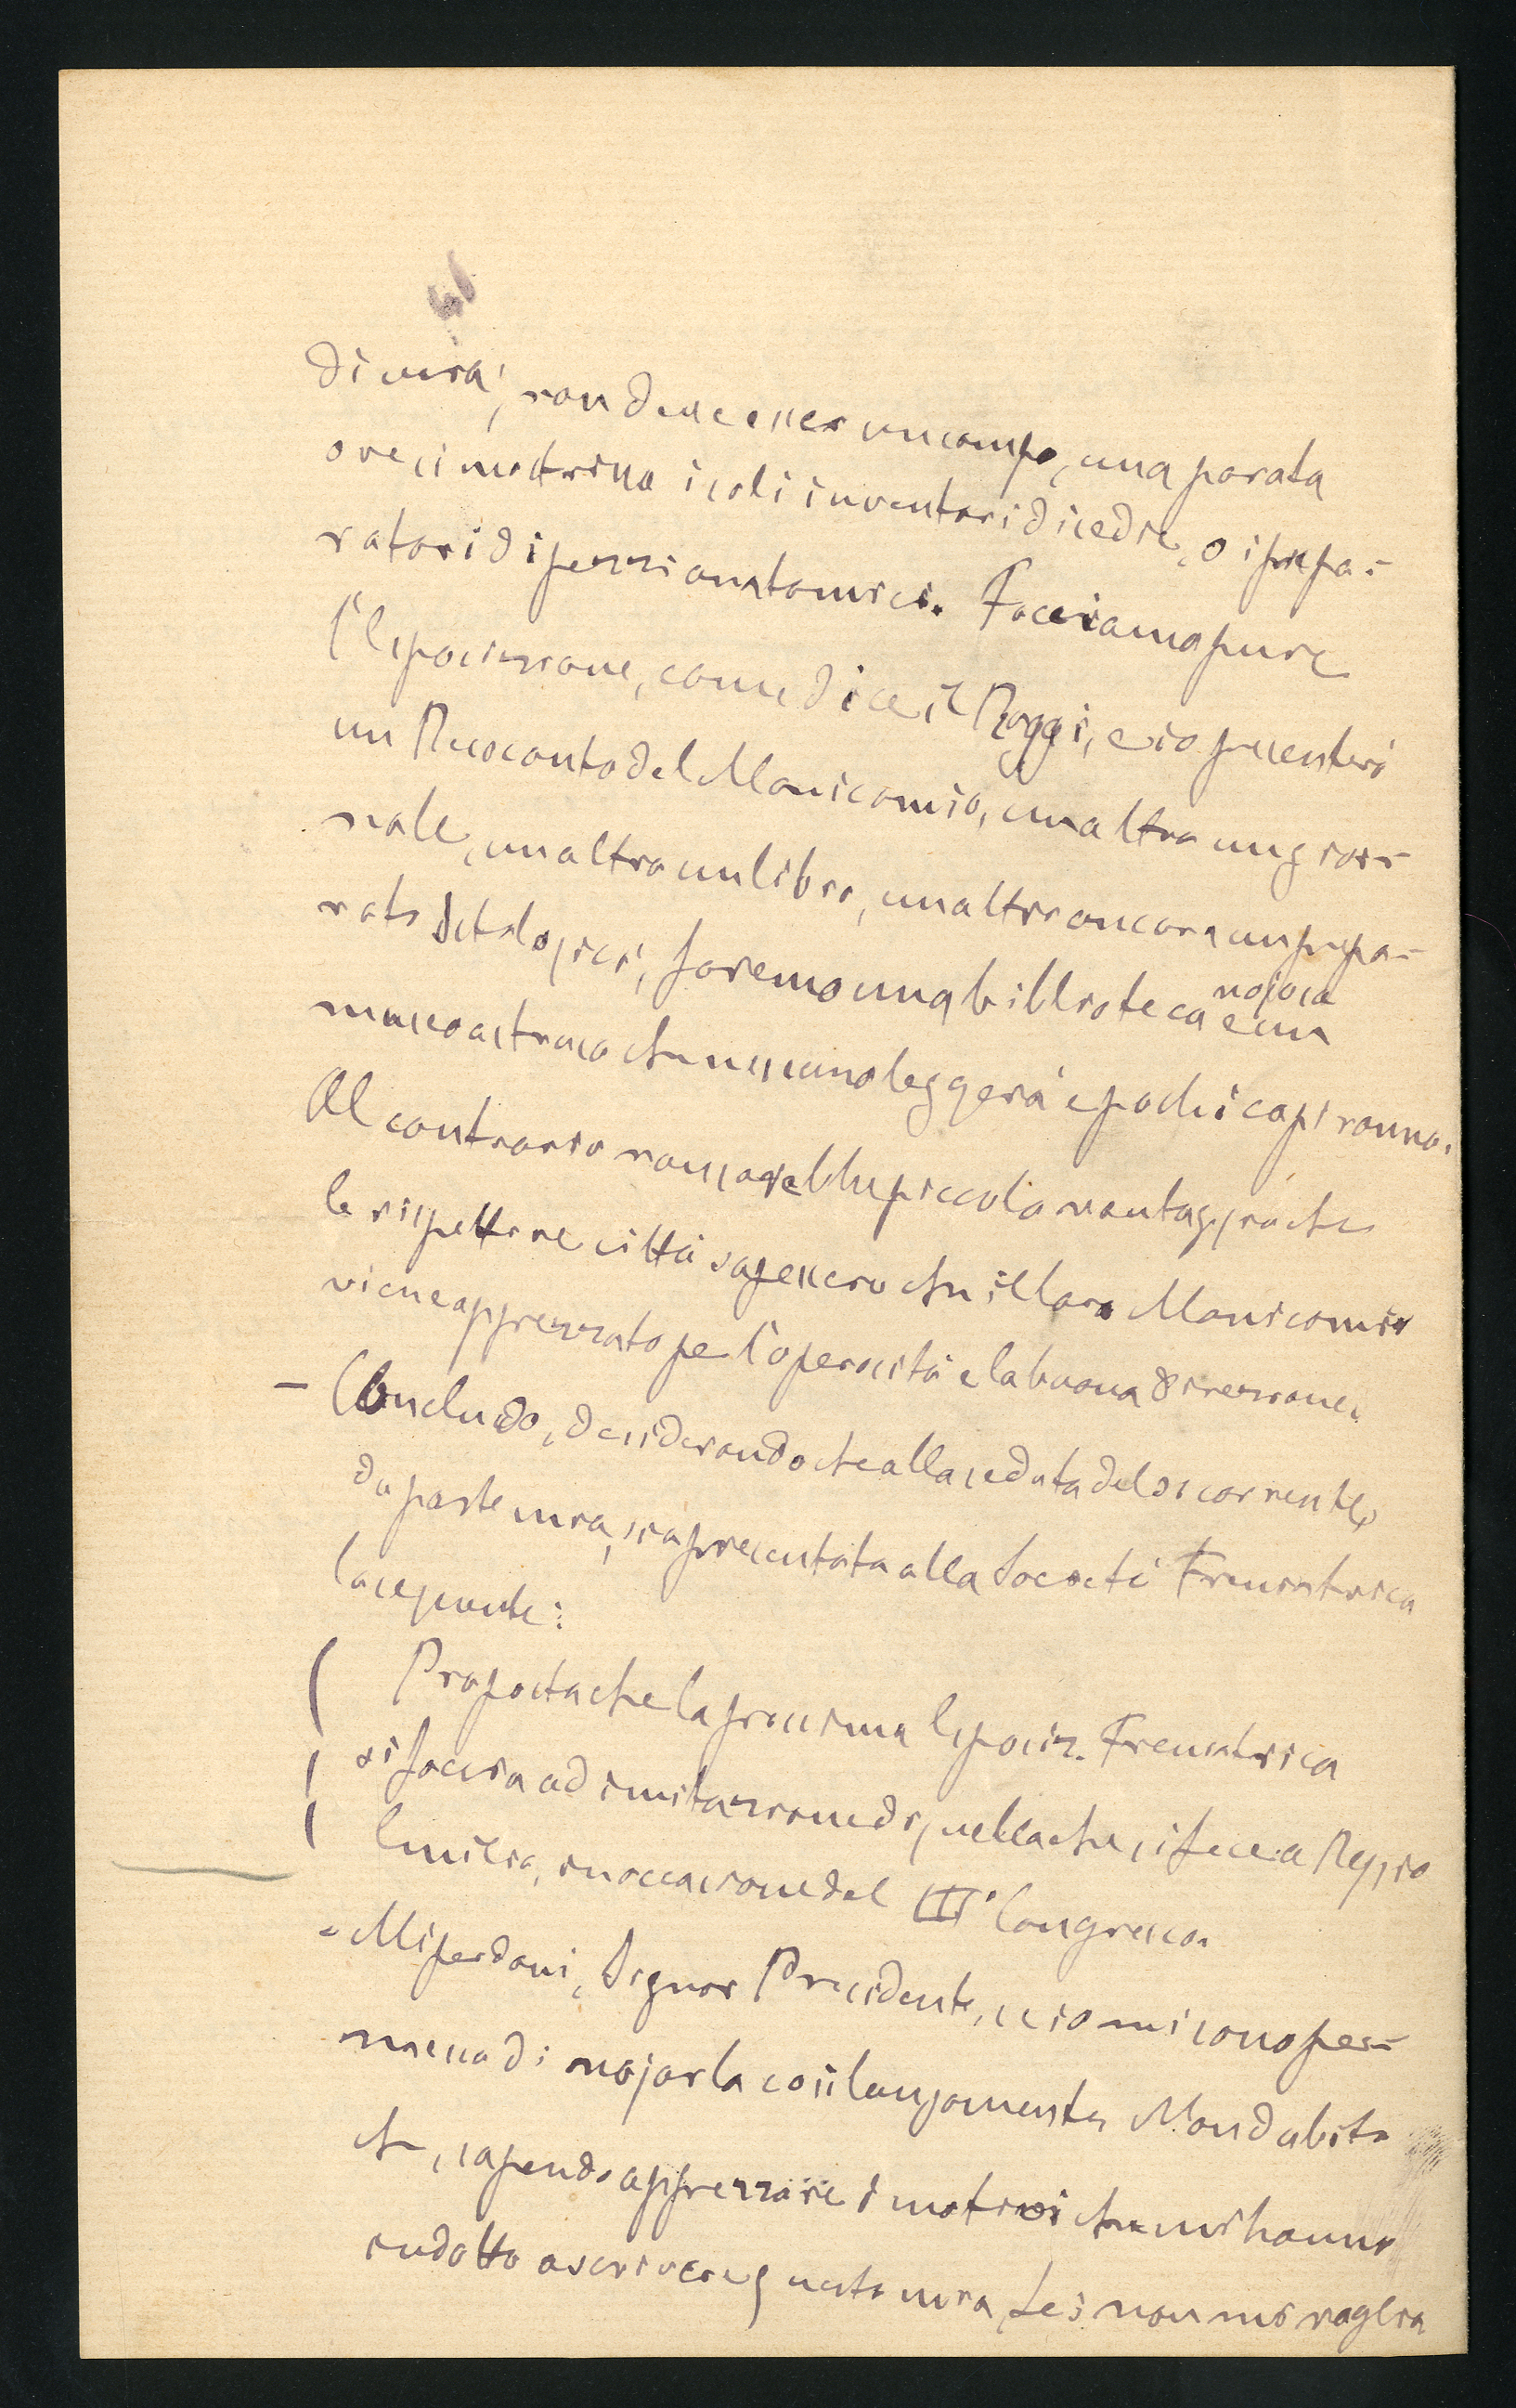 di vera', non deve esser un campo, una parata
ove si mostrino i soli inventori di sedie, o i prepa-
ratori di pezzi anatomici. Facciamo pure
l'Esposizione, come dice il Roggi, e io presenterò
un Resoconto del Manicomio, un altro un gior-
nale, un altro un libro, un altro ancora un prepa-
rato istologico, faremo una biblioteca nojosa e un
museo astruso che nessuno leggerà e pochi capiranno.
Al contrario non sarebbe piccolo vantaggio che
le rispettive città sapessero che il loro Manicomio
viene apprezzato pe l'operosità e la buona direzione.
- Concludo, desiderando che alla seduta del corrente,
da parte mia, sia presentata alla Società Freniatrica
la seguente:
Proposta che la prossima Esposiz. Freniatrica
si faccia ad imitazione di quella che si fece a Reggio
Emilia, in occasione del III° Congresso.
- Mi perdoni, Signor Presidente, se io mi sono per-
messa di nojarla così lungamente. Non dubito
che, sapendo apprezzare i motivi che mi hanno
indotto a scrivere questa mia, Lei non mi voglia